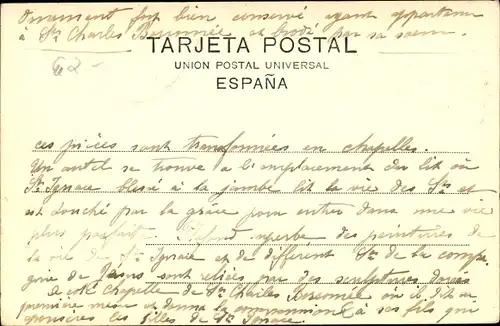 Ornement fort bien conservé ayant appartenu
à St Charles Borromée et brodé par sa soeur
TARJETA POSTAL
UNION POSTAL UNIVERSAL
ESPAÑA
62-
ces pièces sont transformées en chapelles.
Un autel se trouve a l'emplacement du lit où
St Ignace blessé à la jambe lit la vie des Sts et
est touché par la grâce pour entrer dans une vie
plus parfaite. superbe des peintures de
la vie de St Ignace et de différent Sts de la compa
gnie de Jésus sont reliées par des sculptures dorées
a côté chapelle de St Charles Borromée où il dit sa
première messe et donna la communion à ses fils que
les filles de St Ignace.